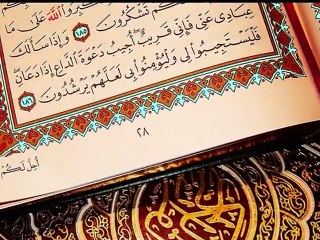 عَلَىٰ مَا
هَدَىٰكُمْ وَلَعَلَّكُمْ تَشْكُرُونَ ١٨٥ وَإِذَا سَأَلَكَ
عِبَادِى عَنِّى فَإِنِّى قَرِيبٌ أُجِيبُ دَعْوَةَ ٱلدَّاعِ إِذَا دَعَانِ
فَلْيَسْتَجِيبُوا۟ لِى وَلْيُؤْمِنُوا۟ بِى لَعَلَّهُمْ يَرْشُدُونَ ١٨٦
٢٨
أُحِلَّ لَكُمْ